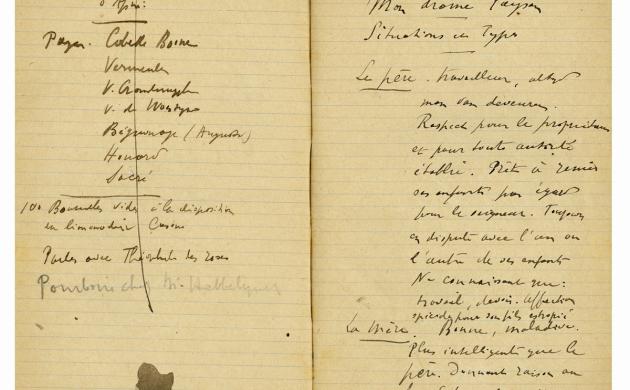 Payer. Cobelle Boine
Vermeulen
Béguinage (Auguste)
Honoré
Sacré
100 Bouteilles vides à la disposition
en limonaderie Casino
Parler avec Théophile des roses
Pourboire chez M.
Mon drame Paysan
Situations et Types
Le père. travailleur,
mon
Respect pour le propriétaire
et pour toute autorité
établie. Prête à renier
ses enfants par égard
pour le seigneur. Toujours
en dispute avec l'un ou
l'autre de ses enfants
Ne connaissant que:
travail, devoir. Affection
spéciale pour son fils estropié
La Mère. Bonne, maladive.
Plus intelligente que le
père. Donnant raison au